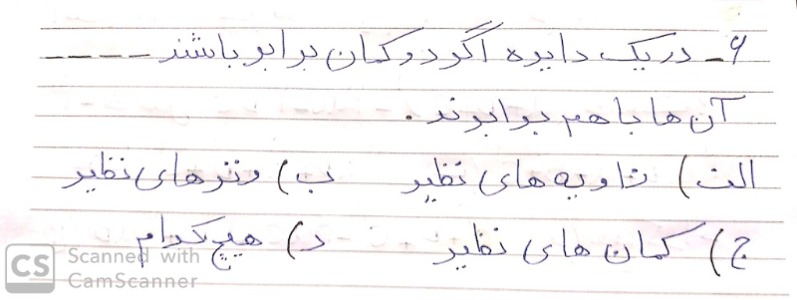 ۶- در یک دایره اگر دو کمان برابر باشند ----
آن ها با هم برابرند .
الف) زاویه های نظیر ب) وترهای نظیر
ج) کمان های نظیر د) هیچ کدام
CS Scanned with
CamScanner